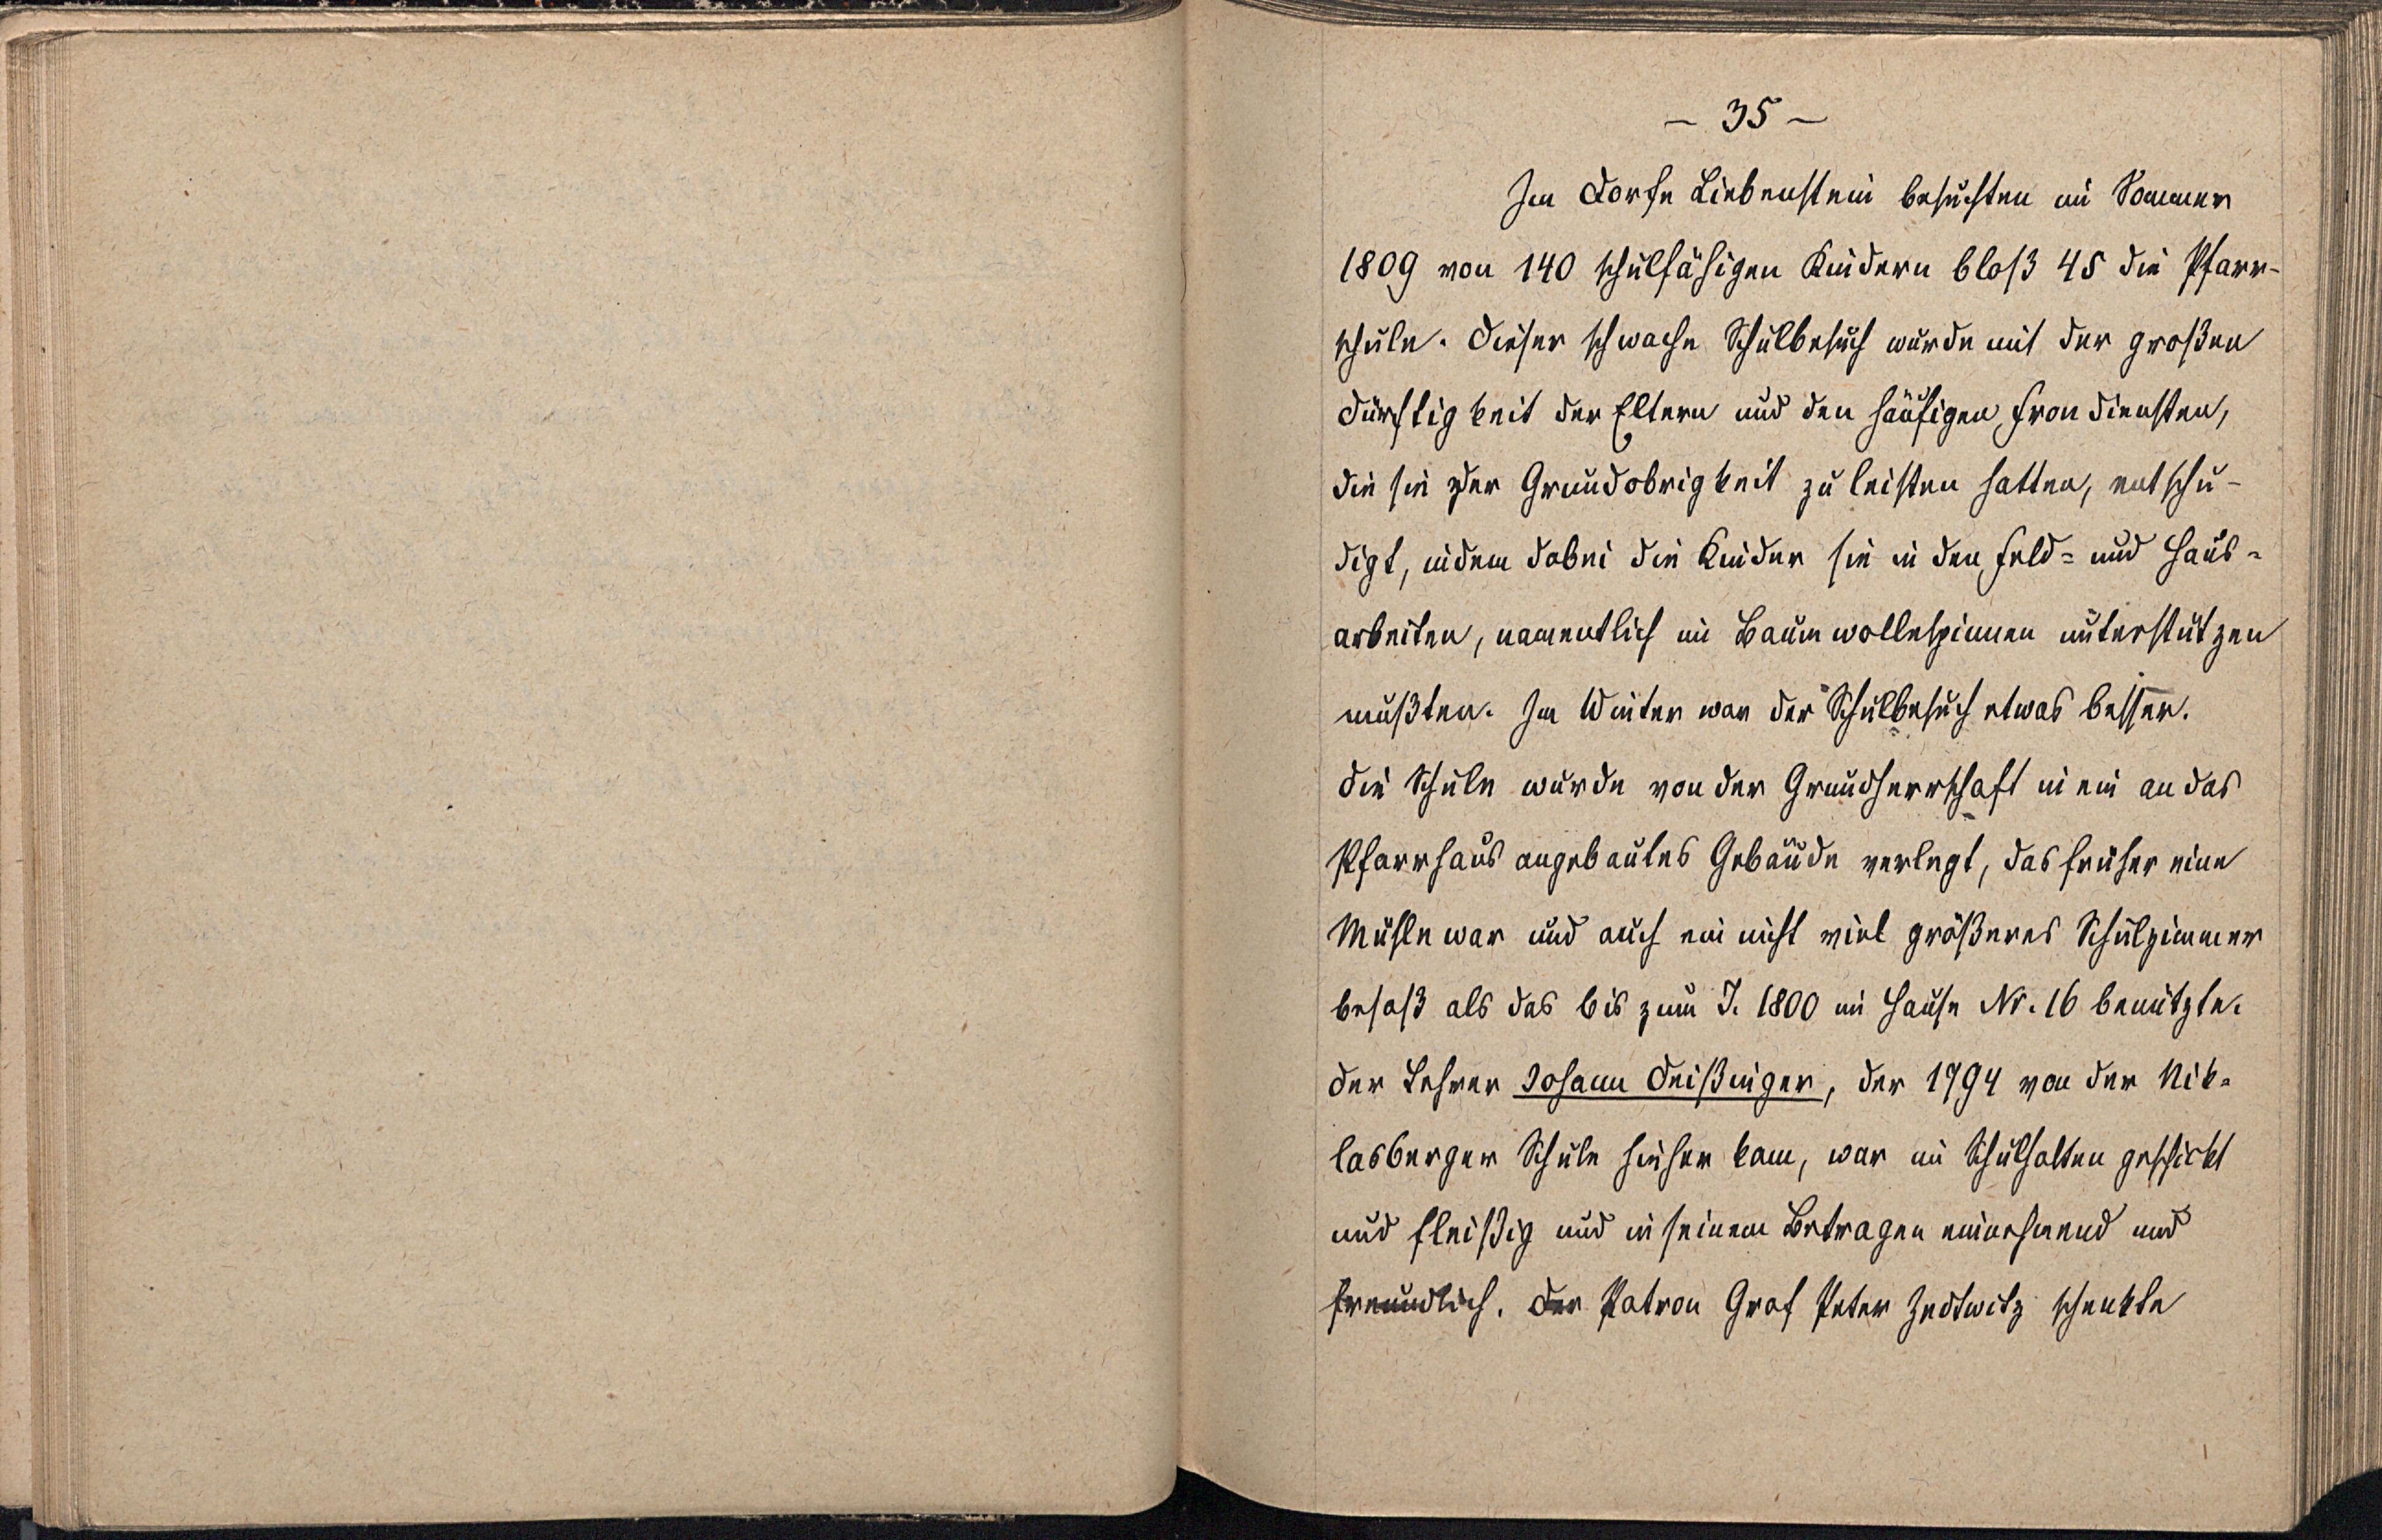 – 35 –
Im Dorfe Liebenstein besuchten im Sommer
1809 von 140 schulfähigen Kindern bloß 45 die Pfarr-
schule. Dieser schwache Schulbesuch wurde mit der großen
Dürftigkeit der Eltern und den häufigen Frondiensten,
die sie der Grundobrigkeit zu leisten hatten, entschu-
digt, indem dabei die Kinder sie in den Feld- und Haus-
arbeiten, namentlich im Baumwollespinnen unterstützen
mußten. Im Winter war der Schulbesuch etwas besser.
Die Schule wurde von der Grundherrschaft in ein an das
Pfarrhaus angebautes Gebäude verlegt, das früher eine
Mühle war und auch ein nicht viel größeres Schulzimmer
besaß als das bis zum J. 1800 im Hause Nr. 16 benützte.
Der Lehrer Johann Deißinger, der 1794 von der Nik-
lasberger Schule hieher kam, war im Schulhalten geschickt
und fleißig und in seinem Betragen einnehmend und
freundlich. Der Patron Graf Peter Zedtwitz schenkte